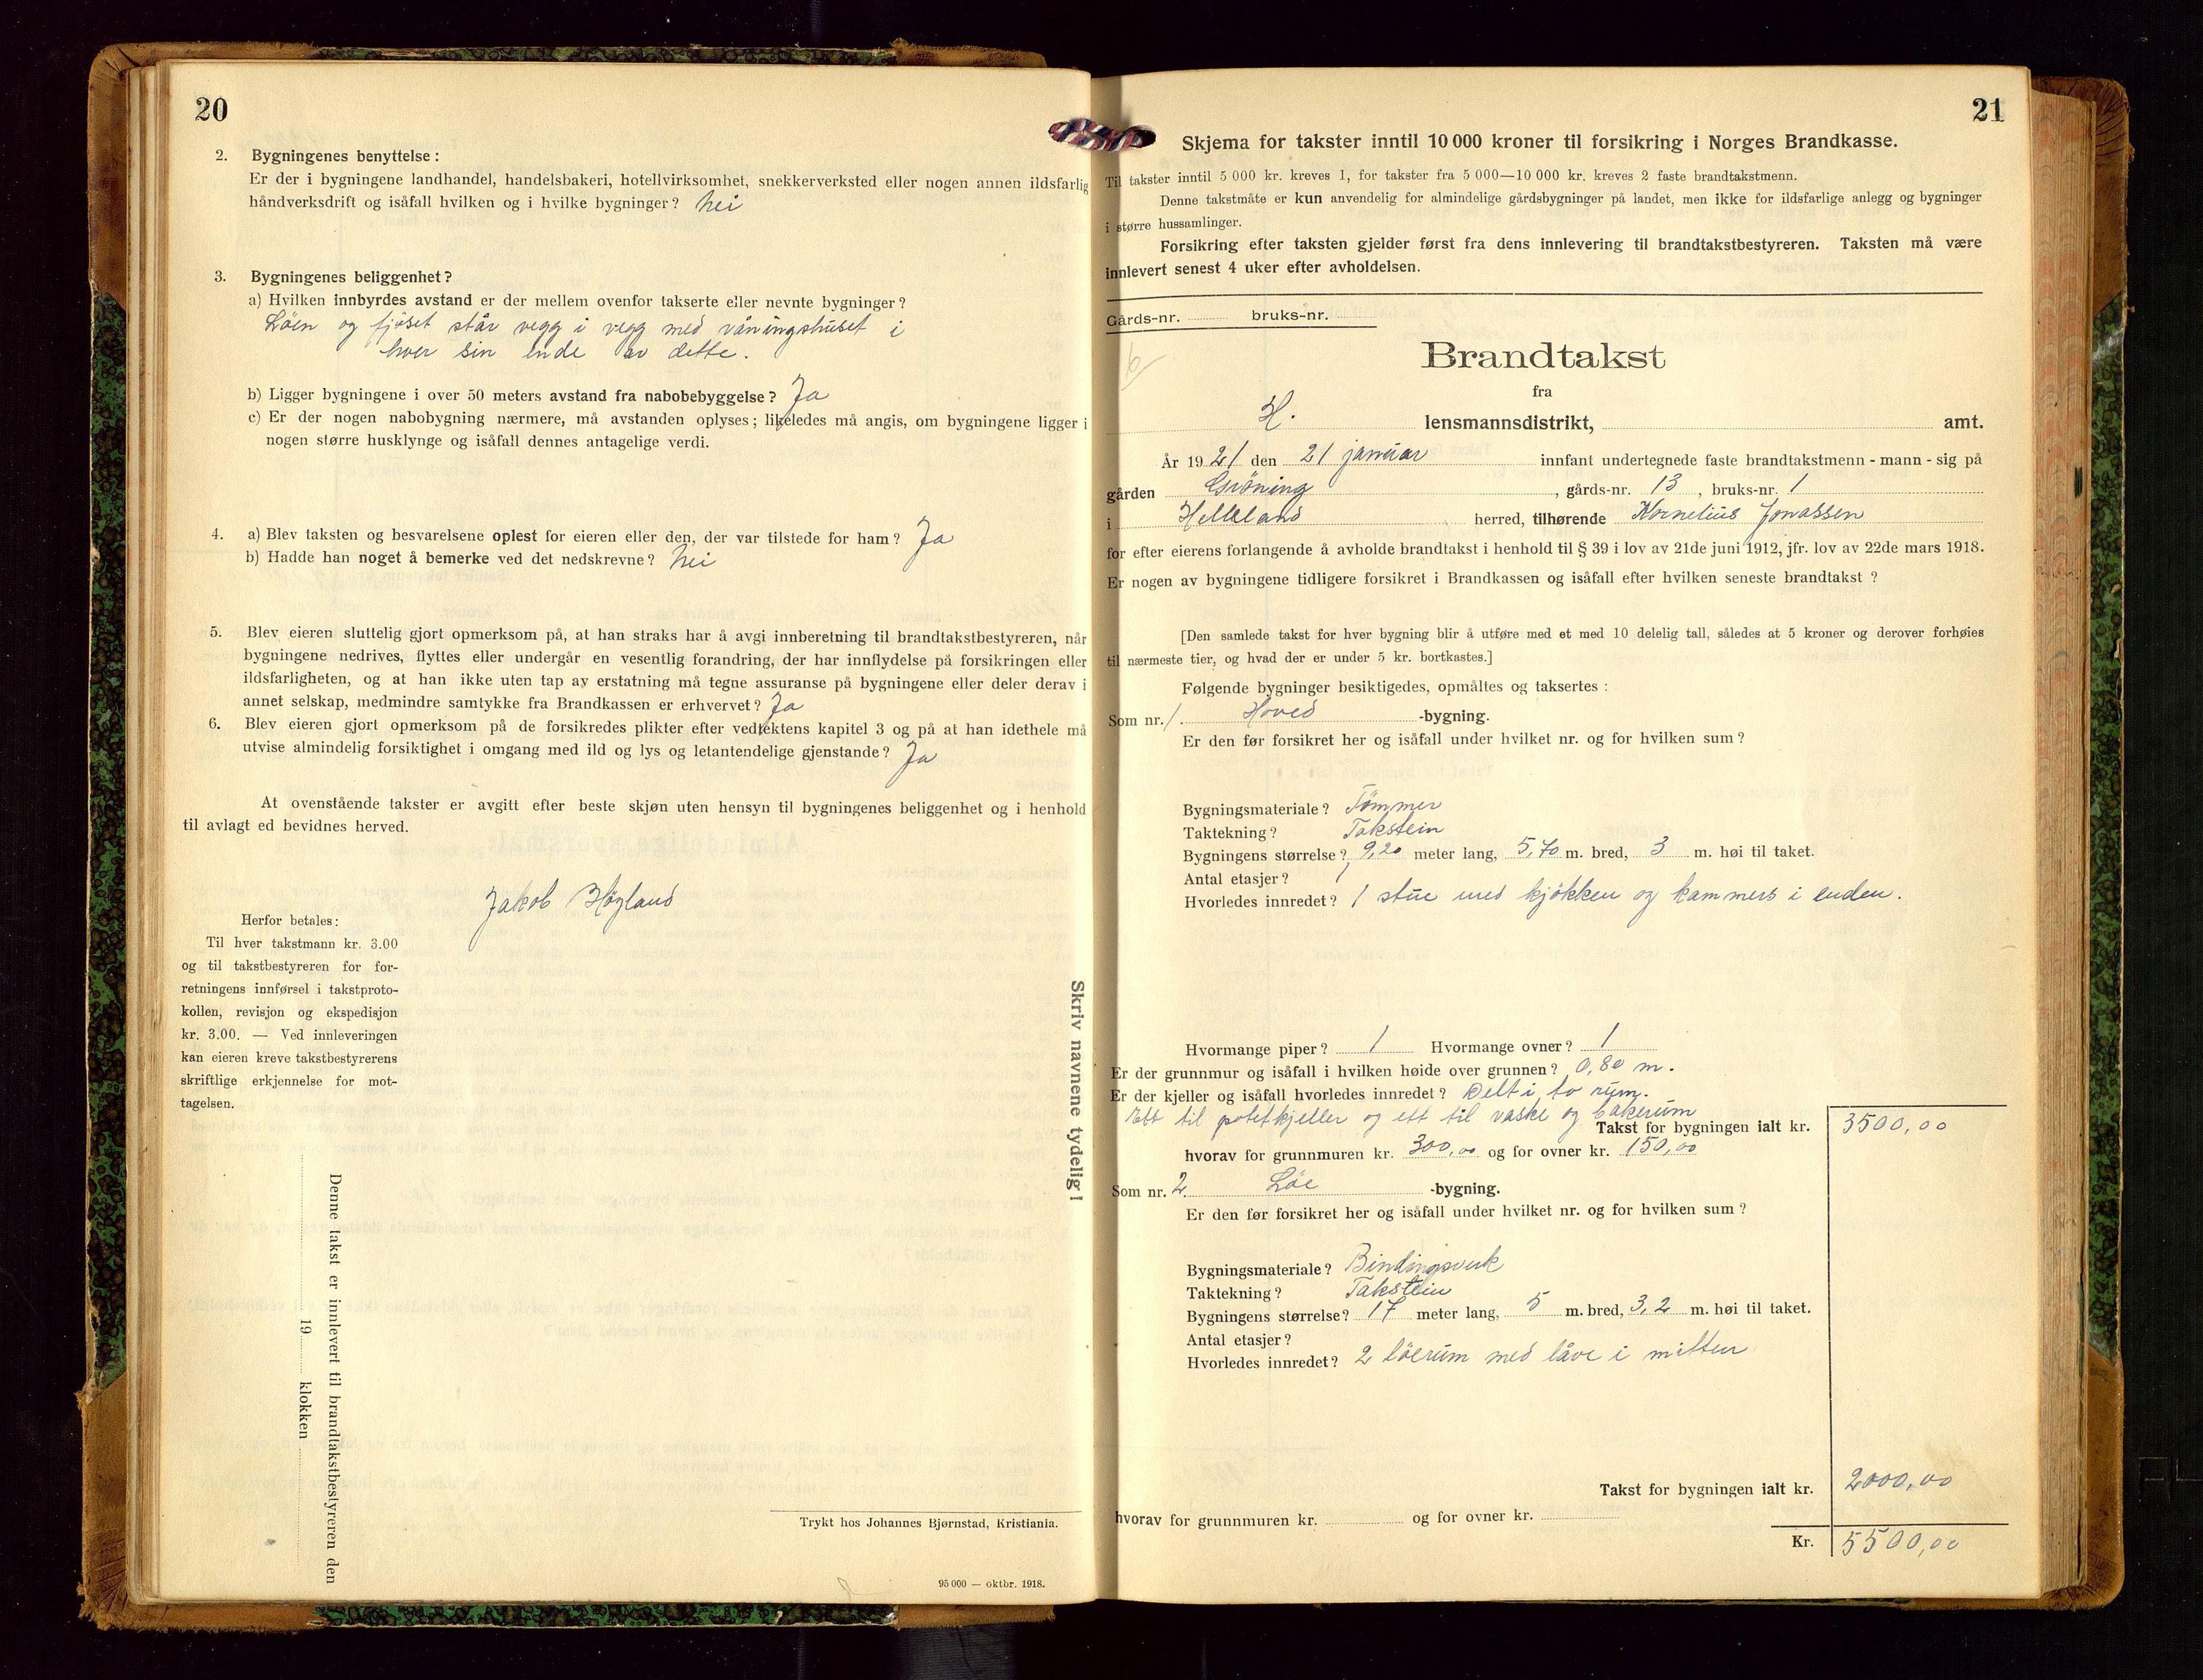 20
2. Bygningenes benyttelse:
Er der i bygningene landhandel, handelsbakeri, hotellvirksomhet, snekkerverksted eller nogen annen ildsfarlig
håndverksdrift og isåfall hvilken og i hvilke bygninger? Nei
3. Bygningenes beliggenhet?
a) Hvilken innbyrdes avstand er der mellem ovenfor takserte eller nevnte bygninger?
Löen og fjöset står vegg i vegg med våningshuset i
hver sin ende av dette.
b) Ligger bygningene i over 50 meters avstand fra nabobebyggelse? Ja
c) Er der nogen nabobygning nærmere, må avstanden oplyses; likeledes må angis, om bygningene ligger i
nogen større husklynge og isåfall dennes antagelige verdi.
4. a) Blev taksten og besvarelsene oplest for eieren eller den, der var tilstede for ham? Ja
b) Hadde han noget å bemerke ved det nedskrevne? Nei
5. Blev eieren sluttelig gjort opmerksom på, at han straks har å avgi innberetning til brandtakstbestyreren, når
bygningene nedrives, flyttes eller undergår en vesentlig forandring, der har innflydelse på forsikringen eller
ildsfarligheten, og at han ikke uten tap av erstatning må tegne assuranse på bygningene eller deler derav i
annet selskap, medmindre samtykke fra Brandkassen er erhvervet? Ja
6. Blev eieren gjort opmerksom på de forsikredes plikter efter vedtektens kapitel 3 og på at han idethele må
utvise almindelig forsiktighet i omgang med ild og lys og letantendelige gjenstande? Ja
At ovenstående takster er avgitt efter beste skjøn uten hensyn til bygningenes beliggenhet og i henhold
til avlagt ed bevidnes herved.
Jakob Høyland
Herfor betales:
Til hver takstmann kr. 3.00
og til takstbestyreren for for-
retningens innførsel i takstproto-
kollen, revisjon og ekspedisjon
kr. 3.00. — Ved innleveringen
kan eieren kreve takstbestyrerens
skriftlige erkjennelse for mot-
tagelsen.
Skriv navnene tydelig!
Denne takst er innlevert til brandtakstbestyreren den
19 klokken
Trykt hos Johannes Bjørnstad, Kristiania.
95 000 — oktbr. 1918.
21
Skjema for takster inntil 10 000 kroner til forsikring i Norges Brandkasse.
Til takster inntil 5 000 kr. kreves 1, for takster fra 5 000—10 000 kr. kreves 2 faste brandtakstmenn.
Denne takstmåte er kun anvendelig for almindelige gårdsbygninger på landet, men ikke for ildsfarlige anlegg og bygninger
i større hussamlinger.
Forsikring efter taksten gjelder først fra dens innlevering til brandtakstbestyreren. Taksten må være
innlevert senest 4 uker efter avholdelsen.
Gårds-nr. bruks-nr.
Brandtakst
fra
H. lensmannsdistrikt, amt.
År 1921 den 21 januar innfant undertegnede faste brandtakstmenn - mann - sig på
gården Gröning, gårds-nr. 13, bruks-nr. 1
i Helleland herred, tilhørende Kornelius Jonassen
for efter eierens forlangende å avholde brandtakst i henhold til § 39 i lov av 21de juni 1912, jfr. lov av 22de mars 1918.
Er nogen av bygningene tidligere forsikret i Brandkassen og isåfall efter hvilken seneste brandtakst?
[Den samlede takst for hver bygning blir å utføre med et med 10 delelig tall, således at 5 kroner og derover forhøies
til nærmeste tier, og hvad der er under 5 kr. bortkastes.]
Følgende bygninger besiktigedes, opmåltes og taksertes:
Som nr. 1. Hoved-bygning.
Er den før forsikret her og isåfall under hvilket nr. og for hvilken sum?
Bygningsmateriale? Tömmer
Taktekning? Takstein
Bygningens størrelse? 9,20 meter lang, 5,70 m. bred, 3 m. høi til taket.
Antal etasjer? 1
Hvorledes innredet? 1 stue med kjökken og kammers i enden.
Hvormange piper? 1 Hvormange ovner? 1
Er der grunnmur og isåfall i hvilken høide over grunnen? 0,80 m.
Er der kjeller og isåfall hvorledes innredet? Delt i to rum.
Ett til potetkjeller og ett til vaske og bakerum
Takst for bygningen ialt kr. 3500,00
hvorav for grunnmuren kr. 300,00 og for ovner kr. 150,00
Som nr. 2. Löe -bygning.
Er den før forsikret her og isåfall under hvilket nr. og for hvilken sum?
Bygningsmateriale? Bindingsverk
Taktekning? Takstein
Bygningens størrelse? 17 meter lang, 5 m. bred, 3,2 m. høi til taket.
Antal etasjer?
Hvorledes innredet? 2 löerum med låve i mitten
Takst for bygningen ialt kr. 2000,00
hvorav for grunnmuren kr. og for ovner kr.
Kr. 5500,00